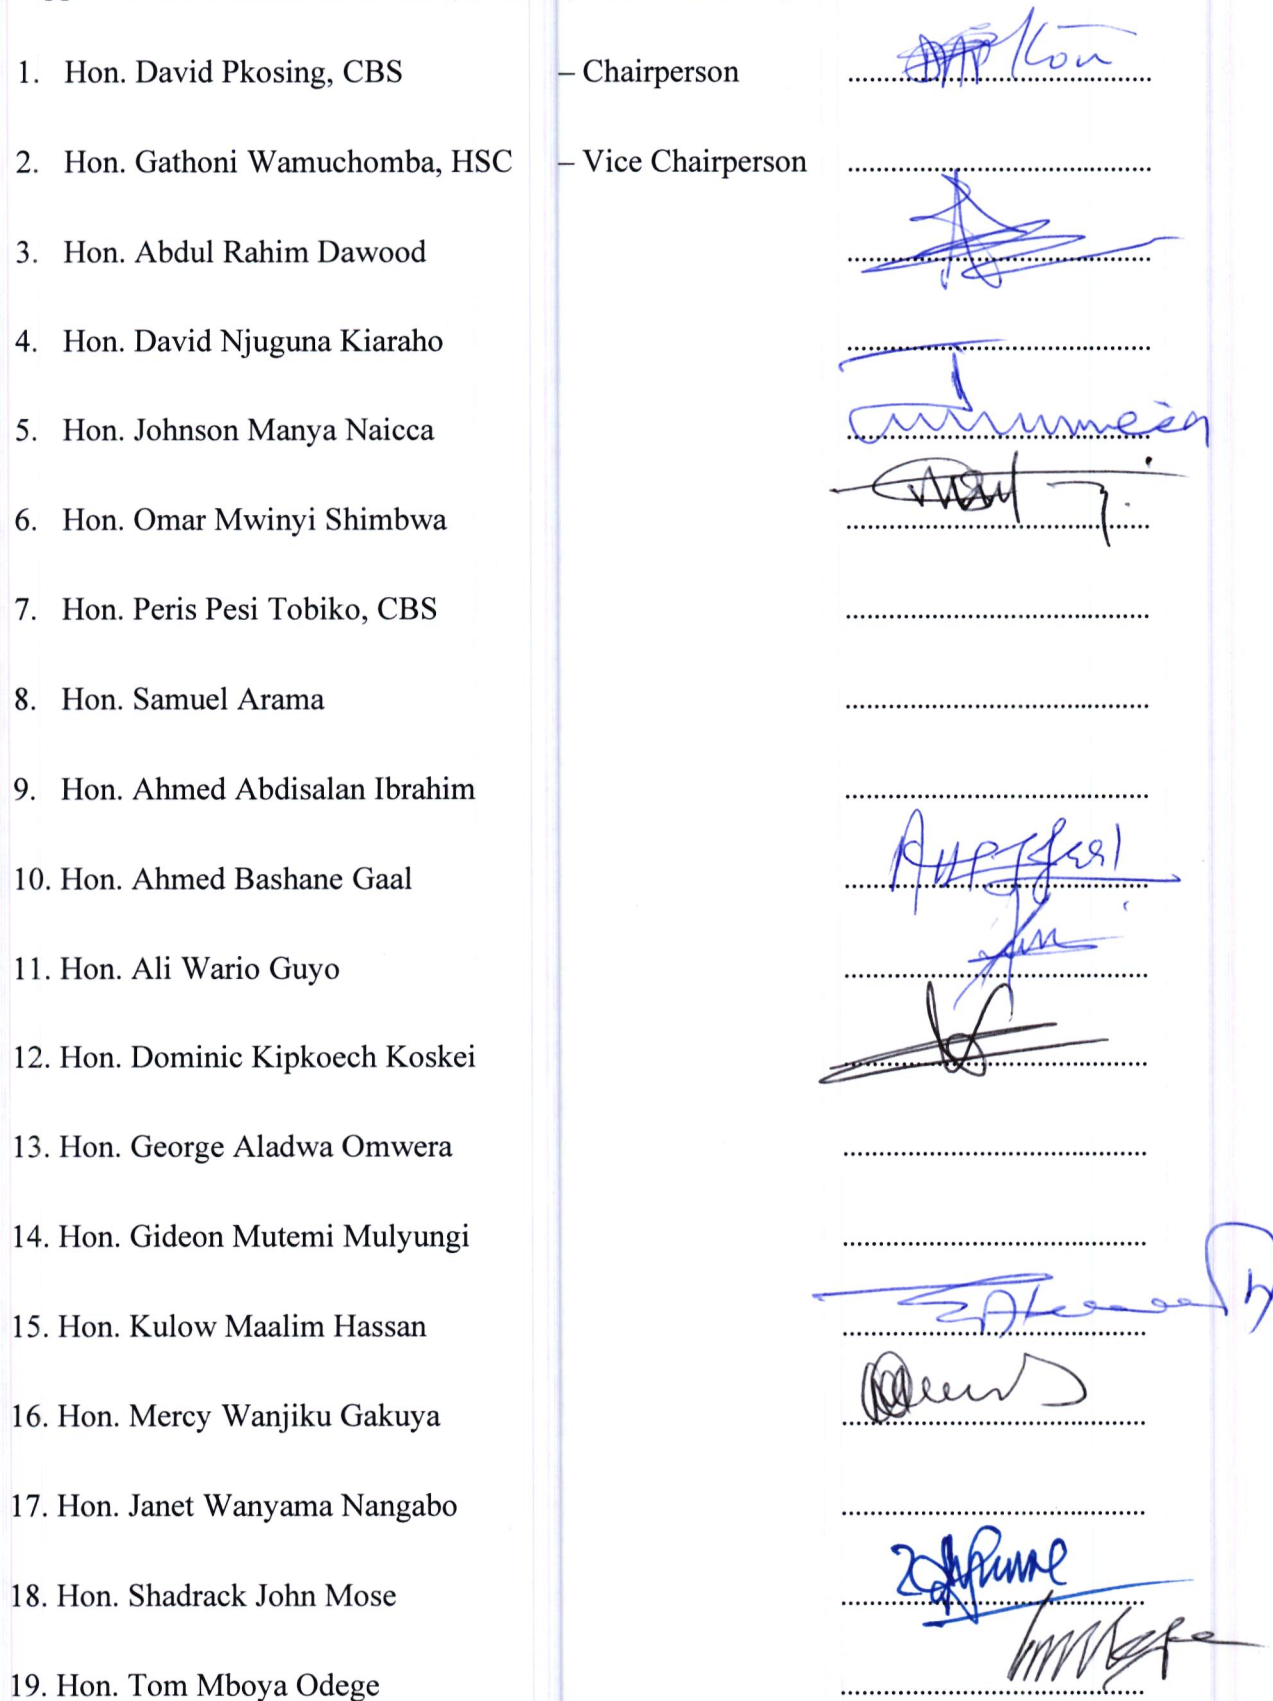 1. Hon. David Pkosing, CBS – Chairperson ..........
2. Hon. Gathoni Wamuchomba, HSC – Vice Chairperson ..........
3. Hon. Abdul Rahim Dawood ..........
4. Hon. David Njuguna Kiaraho ..........
5. Hon. Johnson Manya Naicca ..........
6. Hon. Omar Mwinyi Shimbwa ..........
7. Hon. Peris Pesi Tobiko, CBS ..........
8. Hon. Samuel Arama ..........
9. Hon. Ahmed Abdisalan Ibrahim ..........
10. Hon. Ahmed Bashane Gaal ..........
11. Hon. Ali Wario Guyo ..........
12. Hon. Dominic Kipkoech Koskei ..........
13. Hon. George Aladwa Omwera ..........
14. Hon. Gideon Mutemi Mulyungi ..........
15. Hon. Kulow Maalim Hassan ..........
16. Hon. Mercy Wanjiku Gakuya ..........
17. Hon. Janet Wanyama Nangabo ..........
18. Hon. Shadrack John Mose ..........
19. Hon. Tom Mboya Odege ..........